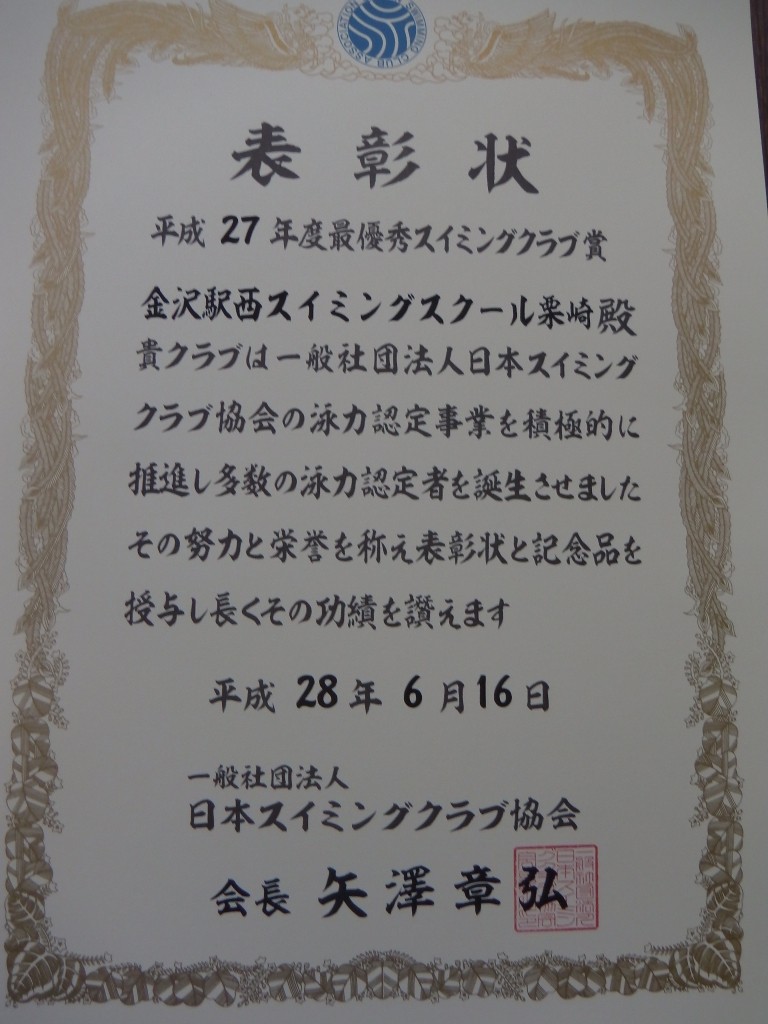 表彰状
平成 27 年度最優秀スイミングクラブ賞
金沢駅西スイミングスクール栗崎殿
貴クラブは一般社団法人日本スイミング
クラブ協会の泳力認定事業を積極的に
推進し多数の泳力認定者を誕生させました
その努力と栄誉を称え表彰状と記念品を
授与し長くその功績を讃えます
平成 28 年 6 月 16 日
一般社団法人
日本スイミングクラブ協会
会長 矢澤章弘